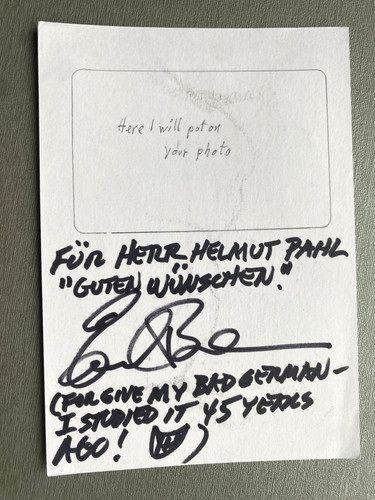 Here I will put on
your photo
FÜR HERR HELMUT PAHL
"GUTEN WÜNSCHEN."
(FORGIVE MY BAD GERMAN–
I STUDIED IT 45 YEARS
AGO! )